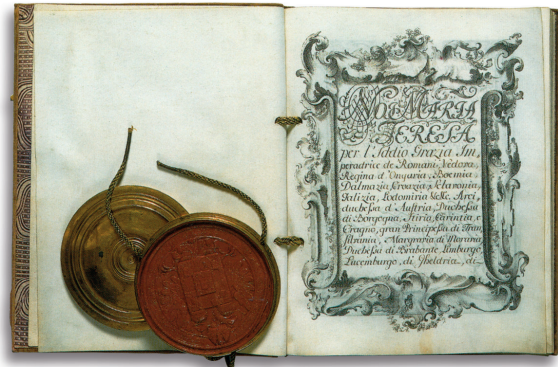 Noi Maria
Teresa
per l'Iddio Grazia Im,
peradrice de Romani Vedova,
Regina d'Ongaria, Boemia,
Dalmazia, Croazia, Sclavonia,
Galizia, Lodomiria &c&c. Arci,
duchessa d'Austria, Duchessa
di Borgogna, Stiria, Carintia, e
Cragno, gran Principessa di Tran,
silvania, Margravia di Moravia
Duchessa di Brabante, Limburgo,
Lucemburgo, di Gheldria, &c.